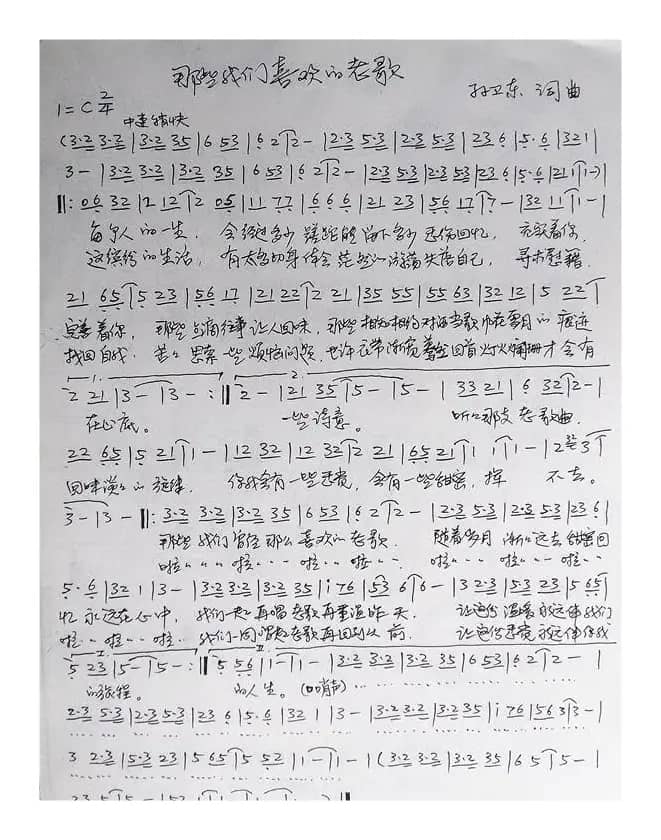 那些我们喜欢的老歌
1=C 2/4 孙卫东 词曲
中速稍快
(3·2 3·2 | 3·2 35 | 6 53 | 6 2 | 2 - | 2·3 5·3 | 2·3 5·3 | 23 6 | 5·6 | 321 |
3 - | 3·2 3·2 | 3·2 35 | 6 53 | 6 2 | 2 - | 2·3 5·3 | 2·3 53 | 23 6 | 5·6 | 21 1 | 1 -) |
‖: 06 32 | 2 12 | 2 05 | 11 77 | 6 6 6 | 21 23 | 56 17 | 7 - | 32 11 | 1 - |
每个人的一生, 会经过多少蹉跎能留下多少悲伤回忆, 充实着你
这缤纷的生活, 有太多切身体会茫然心激荡失落自己, 寻求慰藉
21 65 | 5 23 | 56 17 | 21 22 | 2 21 | 35 55 | 55 63 | 32 12 | 5 22 |
完善着你, 那些点滴往事让人回味, 那些相知相约对酒当歌 岁月的痕迹
找回自我. 苦苦思索一些烦恼问题, 也许 蓦然回首灯火阑珊才会有
1. 2.
2 21 | 3 - | 3 - :‖ 2 - | 21 35 | 5 - | 5 - | 33 21 | 6 32 | 2 - |
在心底。 一些诗意。 听听那支老歌曲.
22 65 | 5 21 | 1 - | 12 32 | 12 32 | 2 21 | 65 21 | 1 1 | 1 - | 2 3 |
回味淡淡的旋律. 你我会有一些悲哀, 会有一些甜蜜, 挥 不去。
3 - | 3 - ‖: 3·2 3·2 | 3·2 35 | 6 53 | 6 2 | 2 - | 2·3 5·3 | 2·3 5·3 | 23 6 |
那些我们曾经那么喜欢的老歌. 随着岁月渐渐远去甜蜜回
啦 啦 啦 啦 啦 啦 啦
5·6 | 32 1 | 3 - | 3·2 3·2 | 3·2 35 | i 76 | 53 6 | 6 - | 3 2·3 | 5·3 23 | 5 65 |
忆永远在心中, 我们一起再唱老歌再重温昨天. 让这份温暖永远伴我们
啦 啦 啦 我们一同唱起老歌再回到从前. 让这份悲哀永远伴你我
I. II.
5 23 | 5 - | 5 - :‖ 5 56 | 1 - | 1 - | 3·2 3·2 | 3·2 35 | 6 53 | 6 2 | 2 - |
的旅程。 的人生。(口哨声)
2·3 5·3 | 2·3 5·3 | 23 6 | 5·6 | 32 1 | 3 - | 3·2 3·2 | 3·2 35 | i 76 | 56 3 | 3 - |
3 2·3 | 5·3 23 | 5 65 | 5 52 | 1 - | 1 - | (3·2 3·2 | 3·2 35 | 6 5 | 5 - |